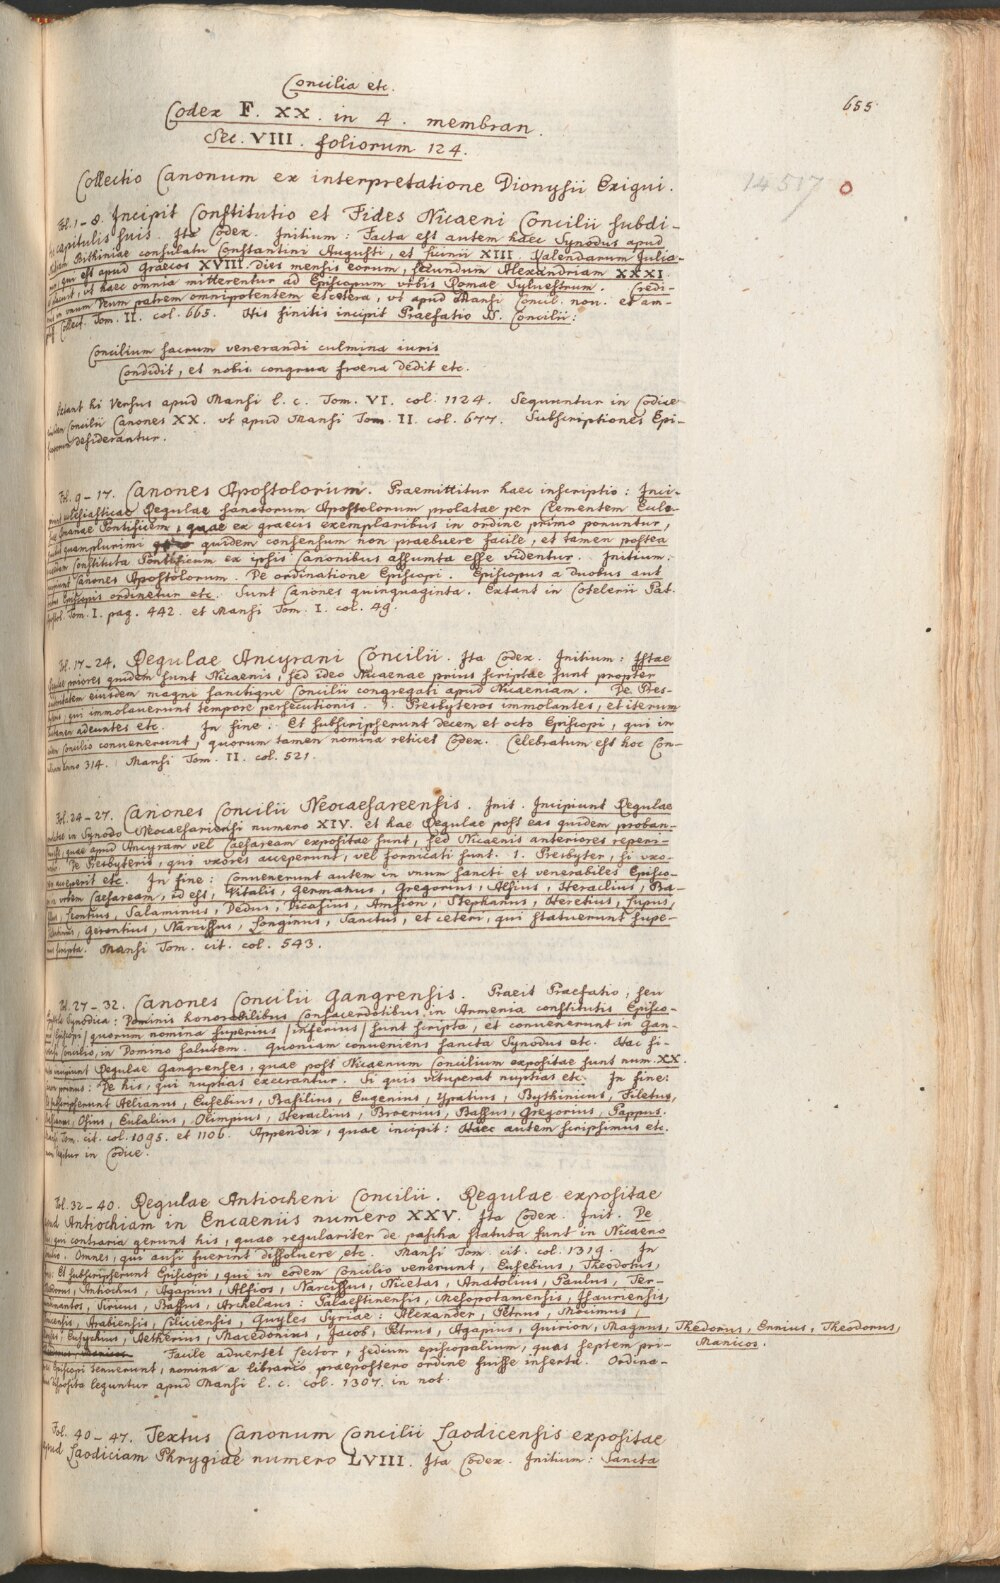 655
Concilia etc.
Codex F. XX. in 4. membran.
Sec. VIII. foliorum 124.
Collectio Canonum ex interpretatione Dionysii Exigui.
14517
Fol. 1-8. Incipit Constitutio et Fides Nicaeni Concilii subdi-
capitulis suis. Ita Codex. Initium: Facta est autem haec Synodus apud
Bithiniae consulatu Constantini Augusti, et Licinii XIII. Kalendarum Julia-
qui est apud Graecos XVIII. dies mensis eorum, secundum Alexandriam XXXI.
vt haec omnia mitterentur ad Episcopum vrbis Romae Sylvestrum. Credi-
in vnum Deum patrem omnipotentem etcetera, vt apud Mansi Concil. nou. et am-
Collect. Tom. II. col. 665. His finitis incipit Praefatio N. Concilii:
Concilium sacrum venerandi culmina iuris
Condidit, et nobis congrua froena dedit etc.
Extant hi Versus apud Mansi l. c. Tom. VI. col. 1124. Sequuntur in Codice
Concilii Canones XX. vt apud Mansi Tom. II. col. 677. Subscriptiones Epi-
desiderantur.
Fol. 9-17. Canones Apostolorum. Praemittitur haec inscriptio: Inci-
ecclesiasticae Regulae sanctorum Apostolorum prolatae per Clementem Eccle-
Romanae Pontificem, quae ex graecis exemplaribus in ordine primo ponuntur,
quamplurimi quidem consensum non praebuere facile, et tamen postea
Constituta Pontificum ex ipsis Canonibus assumta esse videntur. Initium:
Canones Apostolorum. De ordinatione Episcopi. Episcopus a duobus aut
Episcopis ordinetur etc. Sunt Canones quinquaginta. Extant in Cotelerii Pat.
Apostol. Tom. I. pag. 442. et Mansi Tom. I. col. 49.
Fol. 17-24. Regulae Ancyrani Concilii. Ita Codex. Initium: Istae
priores quidem sunt Nicaenis, sed ideo Nicaenae prius scriptae sunt propter
auctoritatem eiusdem magni sanctique Concilii congregati apud Nicaeniam. De Pres-
qui immolauerunt tempore persecutionis. 1. Presbyteros immolantes, et iterum
adeuntes etc. In fine: Et subscripserunt decem et octo Episcopi, qui in
Concilio conuenerunt, quorum tamen nomina reticet Codex. Celebratum est hoc Con-
anno 314. Mansi Tom. II. col. 521.
Fol. 24-27. Canones Concilii Neocaesareensis. Init. Incipiunt Regulae
in Synodo Neocaesariensi numero XIV. et hae Regulae post eas quidem proban-
quae apud Ancyram vel Caesaream expositae sunt, sed Nicaenis anteriores reperi-
De Presbyteris, qui vxores acceperunt, vel fornicati sunt. 1. Presbyter, si vxo-
acceperit etc. In fine: Conuenerunt autem in vnum sancti et venerabiles Episco-
in vrbem Caesaream, id est, Vitalis, Germanus, Gregorius, Alsius, Heraclius, Ba-
Leontius, Salaminus, Dedus, Dicasius, Amsion, Stephanus, Heretius, Lupus,
Gerontius, Narcissus, Longinus, Sanctus, et ceteri, qui statuerunt supe-
scripta. Mansi Tom. cit. col. 543.
Fol. 27-32. Canones Concilii Gangrensis. Praeit Praefatio, seu
Synodica: Dominis honorabilibus Consacerdotibus in Armenia constitutis Episco-
Episcopi / quorum nomina superius / inferius / sunt scripta, et conuenerunt in Gan-
Concilio, in Domino salutem. Quoniam conueniens sancta Synodus etc. Hac fi-
incipiunt Regulae Gangrenses, quae post Nicaenum Concilium expositae sunt num. XX.
primus: De his, qui nuptias execrantur. Si quis vituperat nuptias etc. In fine:
subscripserunt Aelianus, Eusebius, Basilius, Eugenius, Ypratius, Bythinicus, Filetus,
Osius, Eulalius, Olimpius, Heraclius, Broerius, Bassus, Gregorius, Pappus.
Tom. cit. col. 1095. et 1106. Appendix, quae incipit: Haec autem scripsimus etc.
legitur in Codice.
Fol. 32-40. Regulae Antiocheni Concilii. Regulae expositae
apud Antiochiam in Encaeniis numero XXV. Ita Codex. Init. De
qui contraria gerunt his, quae regulariter de pascha statuta sunt in Nicaeno
Omnes, qui ausi fuerint dissoluere etc. Mansi Tom. cit. col. 1319. In
Et subscripserunt Episcopi, qui in eodem Concilio venerunt, Eusebius, Theodotus,
Antiochus, Agapius, Alfios, Narcissus, Nicetas, Anatolius, Paulus, Ter-
Siricus, Bassus, Archelaus: Palaestinensis, Mesopotamensis, Isauriensis,
Arabiensis, Ciliciensis, Guyles Syriae: Alexander, Petrus, Moumus,
Esychius, Aetherius, Macedonius, Jacob, Petrus, Agapius, Quirion, Magnus, Thedorus, Ennius, Theodorus,
Manicos.
Facile aduertet Lector, sedium episcopalium, quas septem pri-
Episcopi tenuerunt, nomina a librario praepostero ordine fuisse inserta. Ordina-
disposita leguntur apud Mansi l. c. col. 1307. in not.
Fol. 40-47. Textus Canonum Concilii Laodicensis expositae
apud Laodiciam Phrygiae numero LVIII. Ita Codex. Initium: Sancta